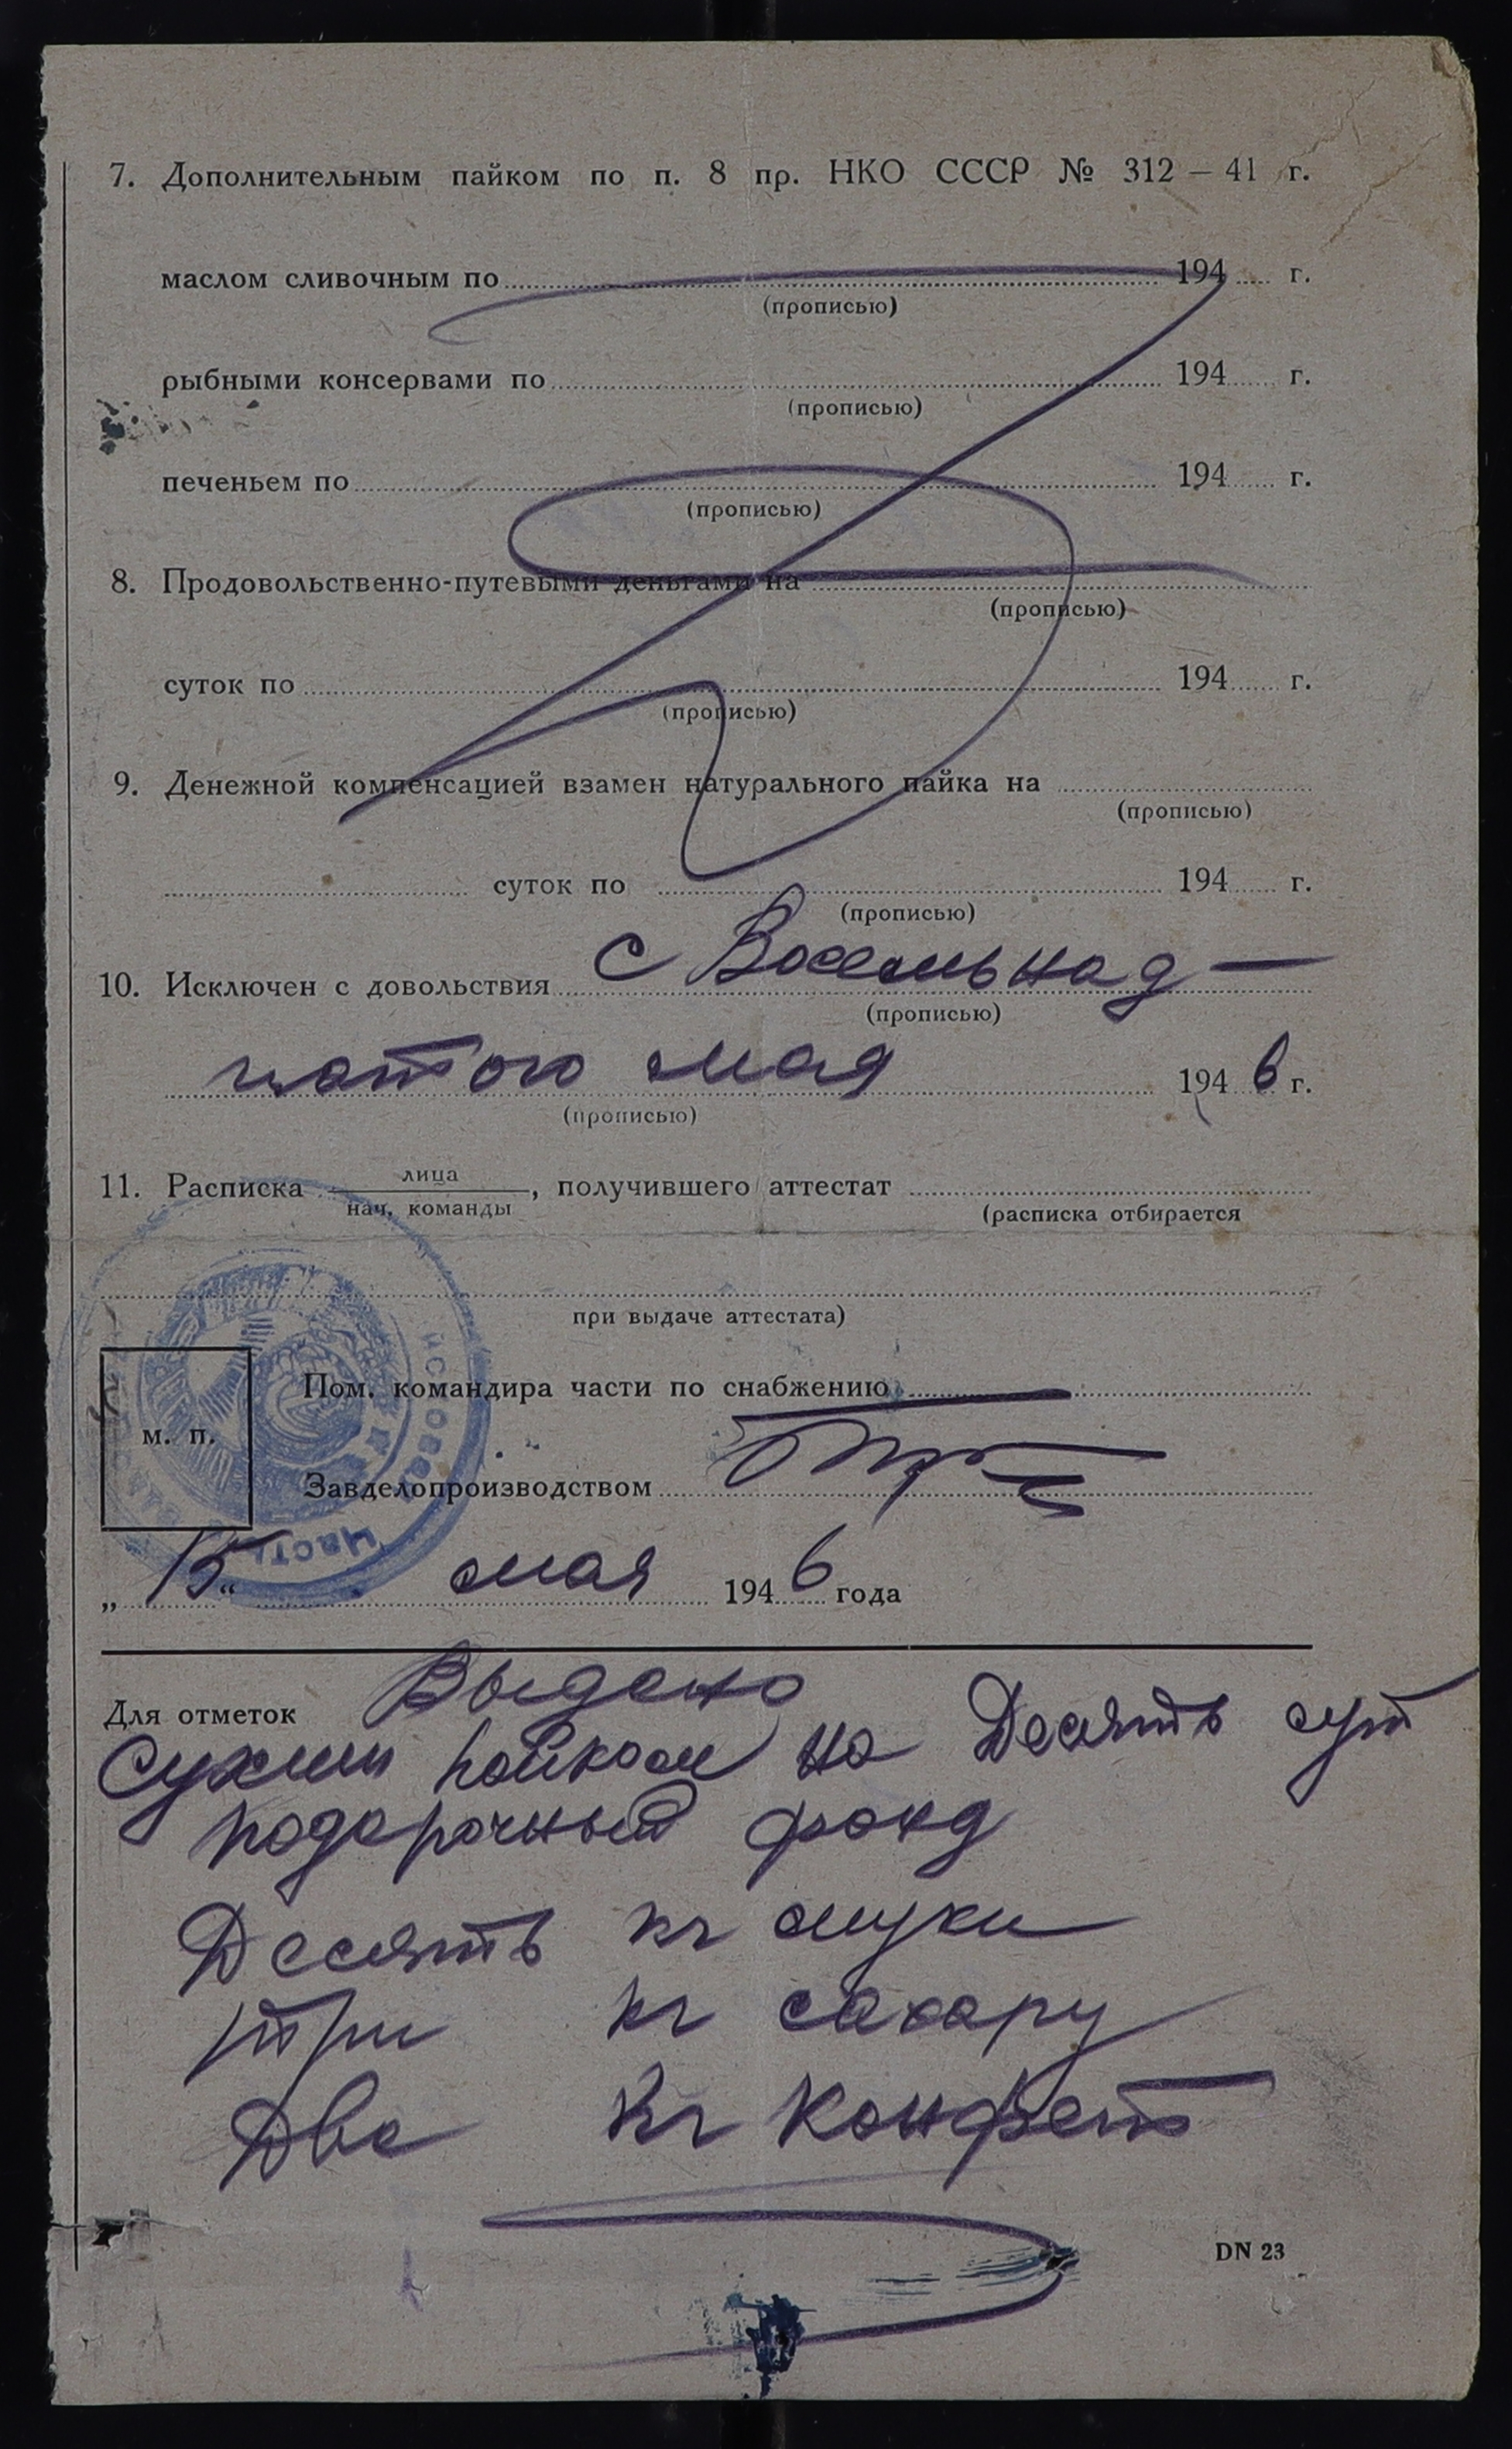 7. Дополнительным пайком по п. 8 пр. НКО СССР № 312 – 41 г.
маслом сливочным по 194 г.
(прописью)
рыбными консервами по 194 г.
(прописью)
печеньем по 194 г.
(прописью)
8. Продовольственно-путевыми деньгами на
(прописью)
суток по 194 г.
(прописью)
9. Денежной компенсацией взамен натурального пайка на
(прописью)
суток по 194 г.
(прописью)
10. Исключен с довольствия с Восемьнад-
(прописью)
цатого мая 1946 г.
(прописью)
11. Расписка лица / нач. команды, получившего аттестат
(расписка отбирается
при выдаче аттестата)
Пом. командира части по снабжению
м. п.
Завделопроизводством
часть
„15“ мая 1946 года
Для отметок Выдано
Сухим пайком на Десять сут
подарочный фонд
Десять кг муки
три кг сахару
Два кг конфет
DN 23